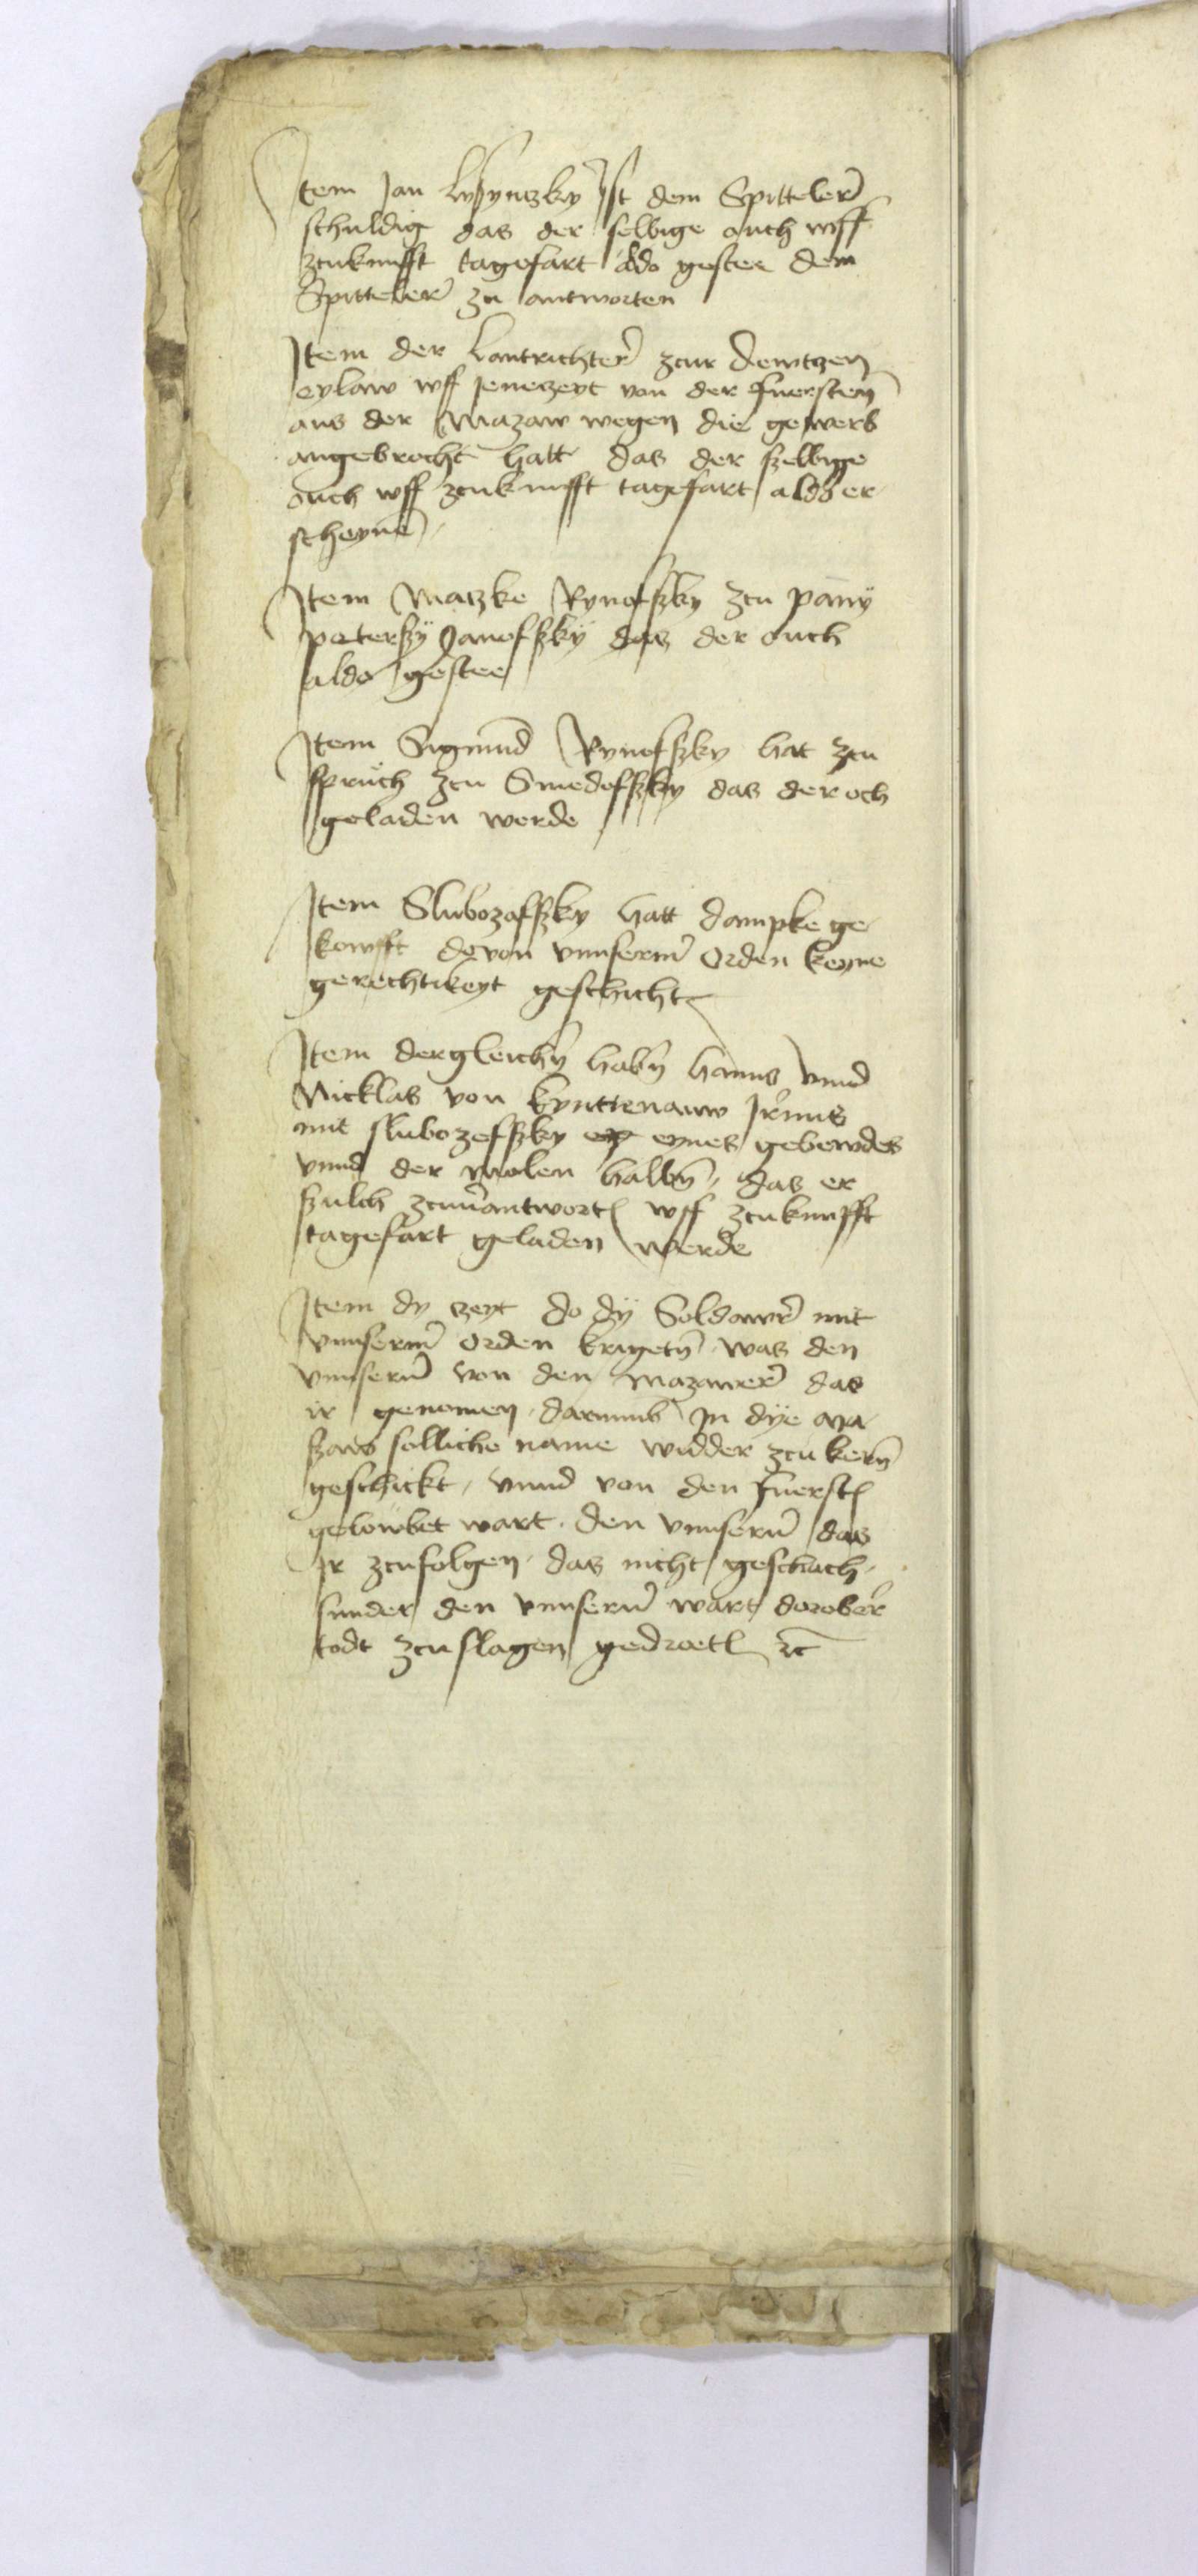 Item Jan Lyßyntzky Ist dem Spitteler
schuldig das der selbige auch wff
zcukunfft tagefart aldo gestee dem
Spitteler zu antworten
Item der lantrichter zcur dewtzen
eylaw wff jenezeyt von der fuersten
aus der Mazaw wegen die gewerb
angebrocht hatt das der szelbige
ouch wff zcukunfft tagefart aldo er
scheyne
Item Matzke Rynofszky zcu pany
peterszy Janofszky das der ouch
aldo gestee
Item Sigmund Rynofszky hat zcu
spruch zcu Smedofszky das der och
geladen werde
Item Slubozofszky hatt dampke ge
kowfft dovon vnnserm Orden keyne
gerechtikeyt geschicht
Item dergleichn habn hanns vnnd
Nicklas von kynttenauw Irnus
mit slubozefszky eynes gebewdes
vnnd der molen halbn, das er
szulch zcuuorantwort wff zcukunfft
tagefart geladen werde
Item dy zeyt do dy Soldawr mit
vnnserm Orden krigetn was den
vnnsern von den Mazawer das
ir genomen, dorumb In dye Ma
szaw solliche name widder zcu kern
geschickt, vnnd von den fuerst
gelowbet wart. den vnnsern das
Ir zcufolgen, das nicht geschach,
sunder den vnnsern wart dorober
todt zcuslagen gedroet ꝛc